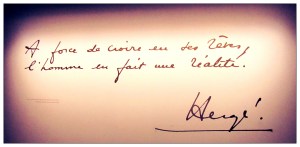 A force de croire en ses rêves,
l'homme en fait une réalité.
Hergé!